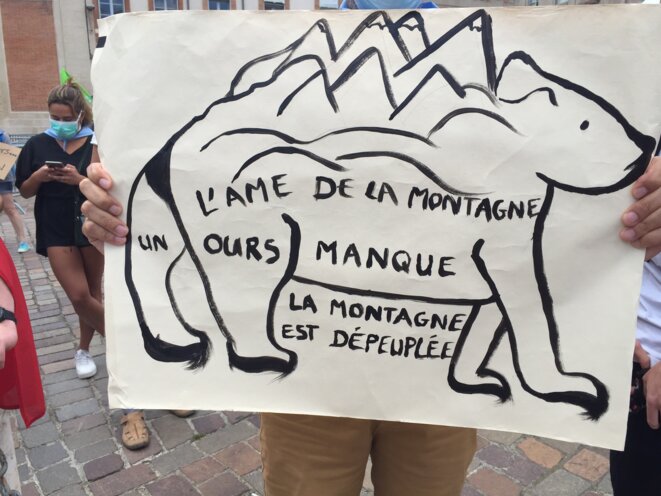 L'AME DE LA MONTAGNE
UN OURS MANQUE
LA MONTAGNE
EST DÉPEUPLÉE